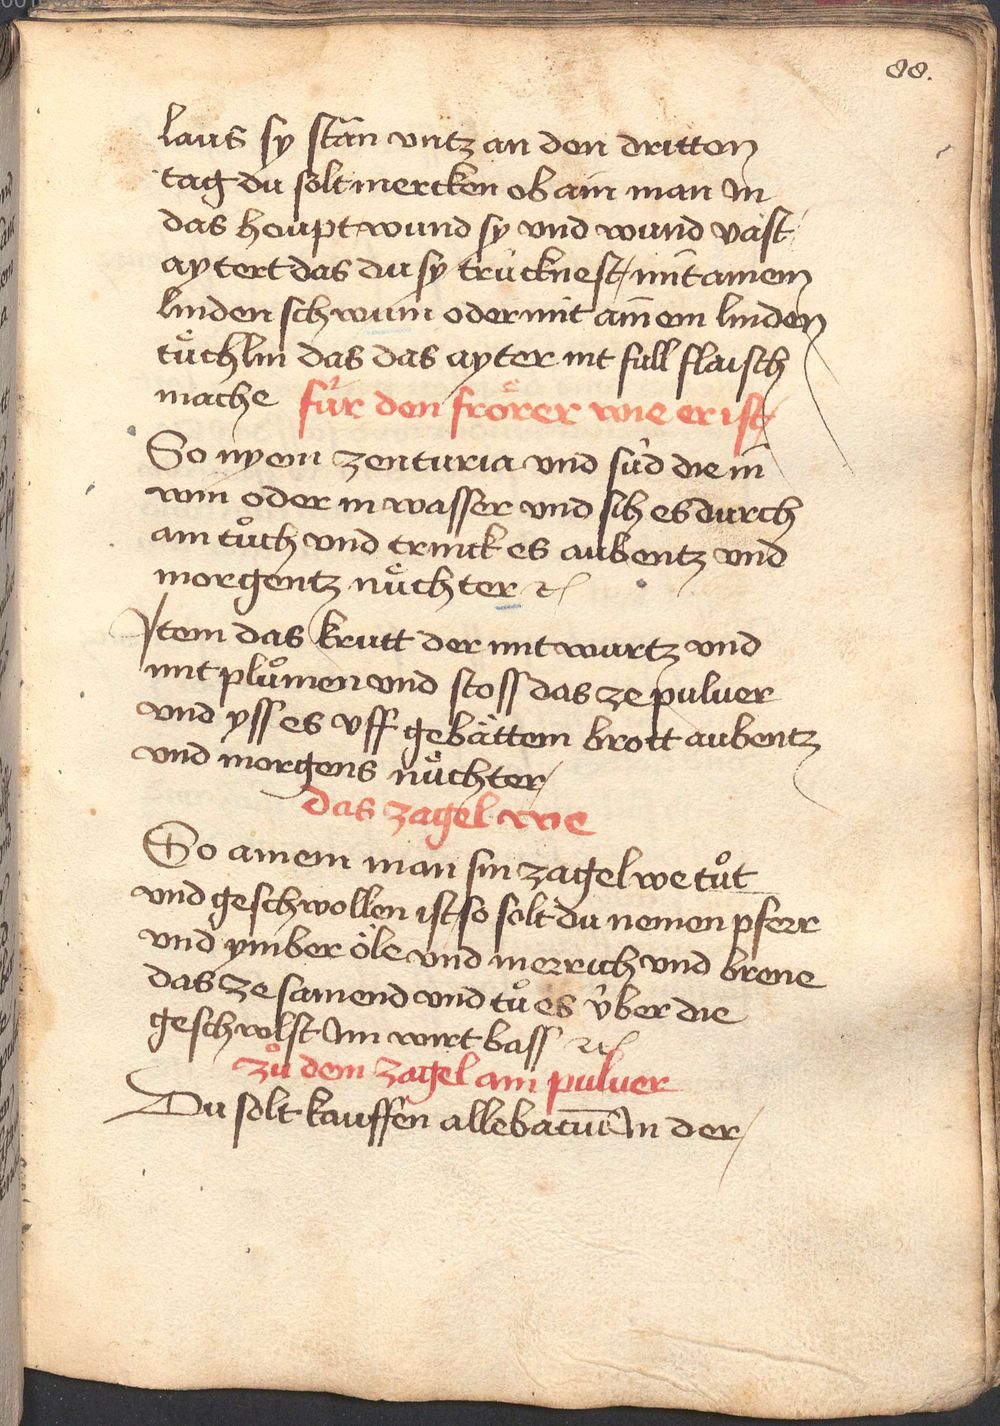 88.
laus sy stān vntz an den dritten
tag du solt mercken ob ain man In
das houpt wund sy vnd wund vast
aytert das du sy trücknest mit ainem
linden schwum oder mit ainem linden
tuͤchlin das das ayter nit full flaisch
mache für den frörer wie er ist
So nyem zenturia vnd süd die in
win oder in wasser vnd sih es durch
ain tuͦch vnd trinck es aubentz vnd
morgentz nuͤchter ⁊c
Item das krutt der mit wurtz vnd
mit pluͦmen vnd stoss das ze puluer
vnd yss es vff gebättem brott aubentz
vnd morgens nuͤchter
das zagel we
So ainem man sin zagel we tuͦt
vnd geschwollen ist so solt du nemen pferr
vnd ymber öle vnd merrich vnd brene
das ze samend vnd tuͦ es über die
geschwlst Im wirt bass ⁊c
zuͦ dem zagel ain puluer
Du solt kauffen allebacum In der